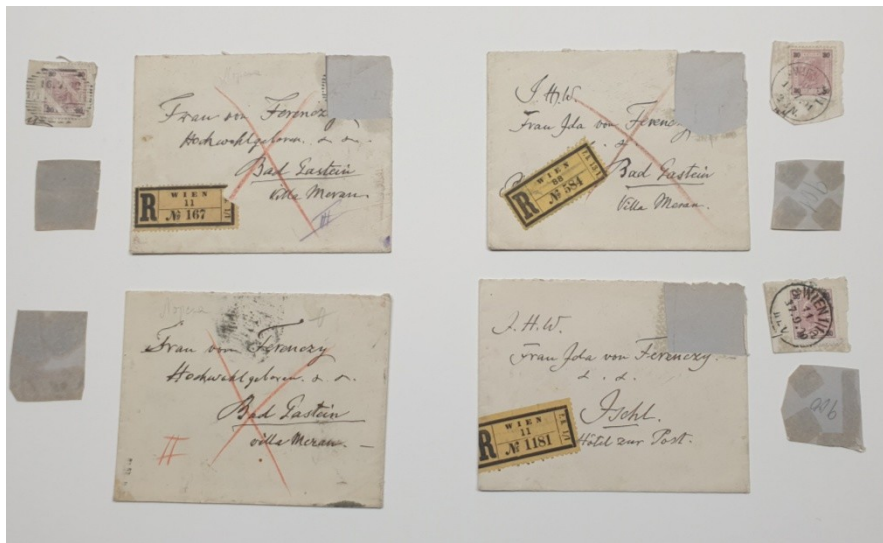 Frau von Ferenczy
Hochwohlgeboren
Bad Gastein
Villa Meran.
R
WIEN
11
№ 167
I. H. W.
Frau Ida von Ferenczy
Bad Gastein
Villa Meran.
R
WIEN
№ 584
Frau von Ferenczy
Hochwohlgeboren
Bad Gastein
Villa Meran.
I. H. W.
Frau Ida von Ferenczy
Ischl.
Hôtel zur Post.
R
WIEN
11
№ 1181
WIEN